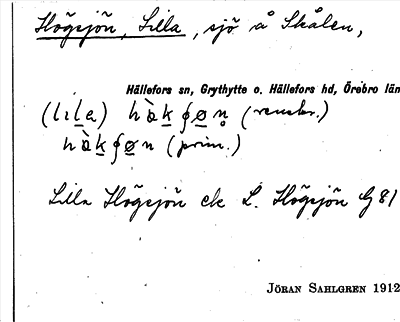 Högsjön, Lilla, sjö å Skålen,
Hällefors sn, Grythytte o. Hällefors hd, Örebro län
(lila) hὰkʃøn̥ (renskr.)
hὰkʃøn (prim.)
Lilla Högsjön ek L. Högsjön G 81
JÖRAN SAHLGREN 1912